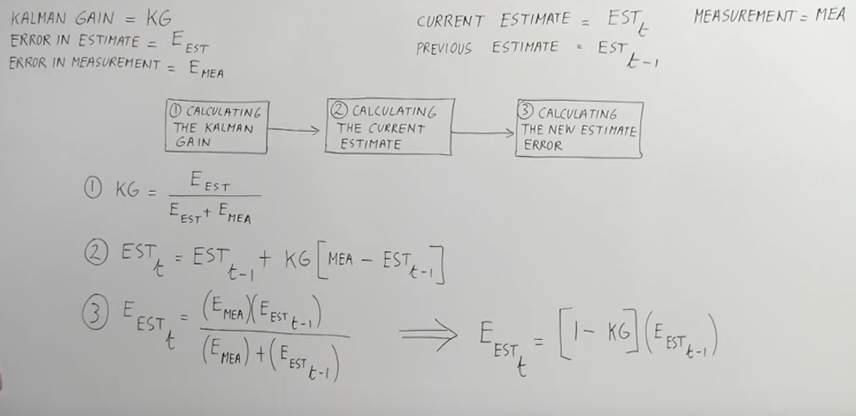 KALMAN GAIN = KG
ERROR IN ESTIMATE = E_EST
ERROR IN MEASUREMENT = E_MEA
CURRENT ESTIMATE = EST_t
PREVIOUS ESTIMATE = EST_t-1
MEASUREMENT = MEA
① CALCULATING
THE KALMAN
GAIN
② CALCULATING
THE CURRENT
ESTIMATE
③ CALCULATING
THE NEW ESTIMATE
ERROR
① KG = E_EST / (E_EST + E_MEA)
② EST_t = EST_t-1 + KG [MEA - EST_t-1]
③ E_EST_t = (E_MEA)(E_EST_t-1) / ((E_MEA) + (E_EST_t-1)) ⟹ E_EST_t = [1 - KG](E_EST_t-1)